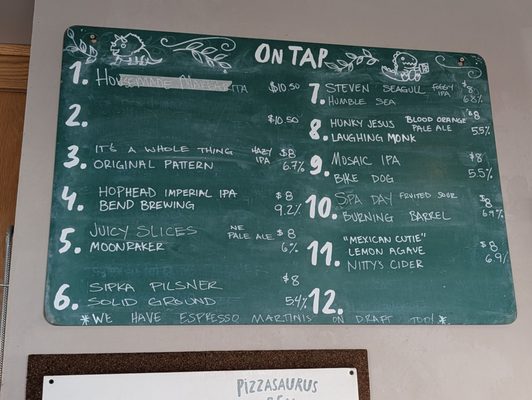 ON TAP
1. HOUSEMADE $10.50
2. $10.50
3. IT'S A WHOLE THING HAZY IPA $8
ORIGINAL PATTERN 6.7%
4. HOPHEAD IMPERIAL IPA $8
BEND BREWING 9.2%
5. JUICY SLICES NE PALE ALE $8
MOONRAKER 6%
6. SIPKA PILSNER $8
SOLID GROUND 5.4%
7. STEVEN SEAGULL FOGGY IPA $8
HUMBLE SEA 6.8%
8. HUNKY JESUS BLOOD ORANGE PALE ALE $8
LAUGHING MONK 5.5%
9. MOSAIC IPA $8
BIKE DOG 5.5%
10. SPA DAY FRUITED SOUR $8
BURNING BARREL 6.9%
11. "MEXICAN CUTIE" $8
LEMON AGAVE 6.9%
NITTY'S CIDER
12.
*WE HAVE ESPRESSO MARTINIS ON DRAFT TOO!*
PIZZASAURUS